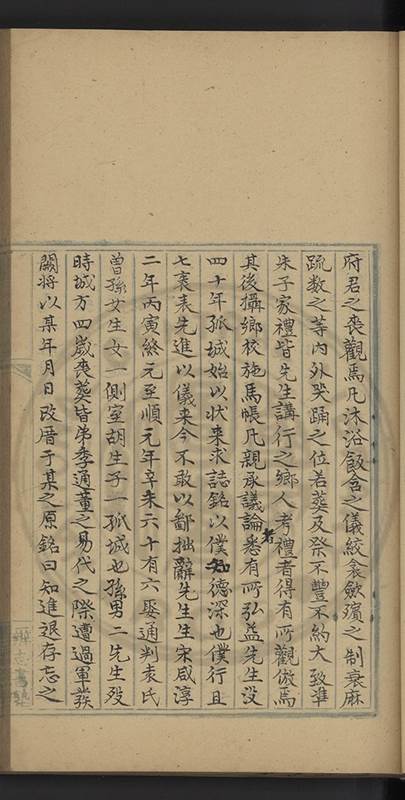 府君之喪觀焉凡沐浴飯含之儀絞衾歛殯之制衰麻
疏数之等内外哭踊之位若葬及祭不豐不約大致準
朱子家禮皆先生講行之鄉人考禮者得有所觀倣焉
其後攝鄉校施馬帳凡親承議論者悉有所弘益先生没
四十年孤城始以状来求誌銘以僕知德深也僕行且
七袠表先進以儀来今不敢以鄙拙辭先生生宋咸淳
二年丙寅終元至順元年辛未六十有六娶通判袁氏
曾孫女生女一側室胡生子一孤城也孫男二先生殁
時城方四歲喪葬皆弟季通董之易代之際遭過軍發
闕将以某年月日改厝于某之原銘曰知進退存忘之